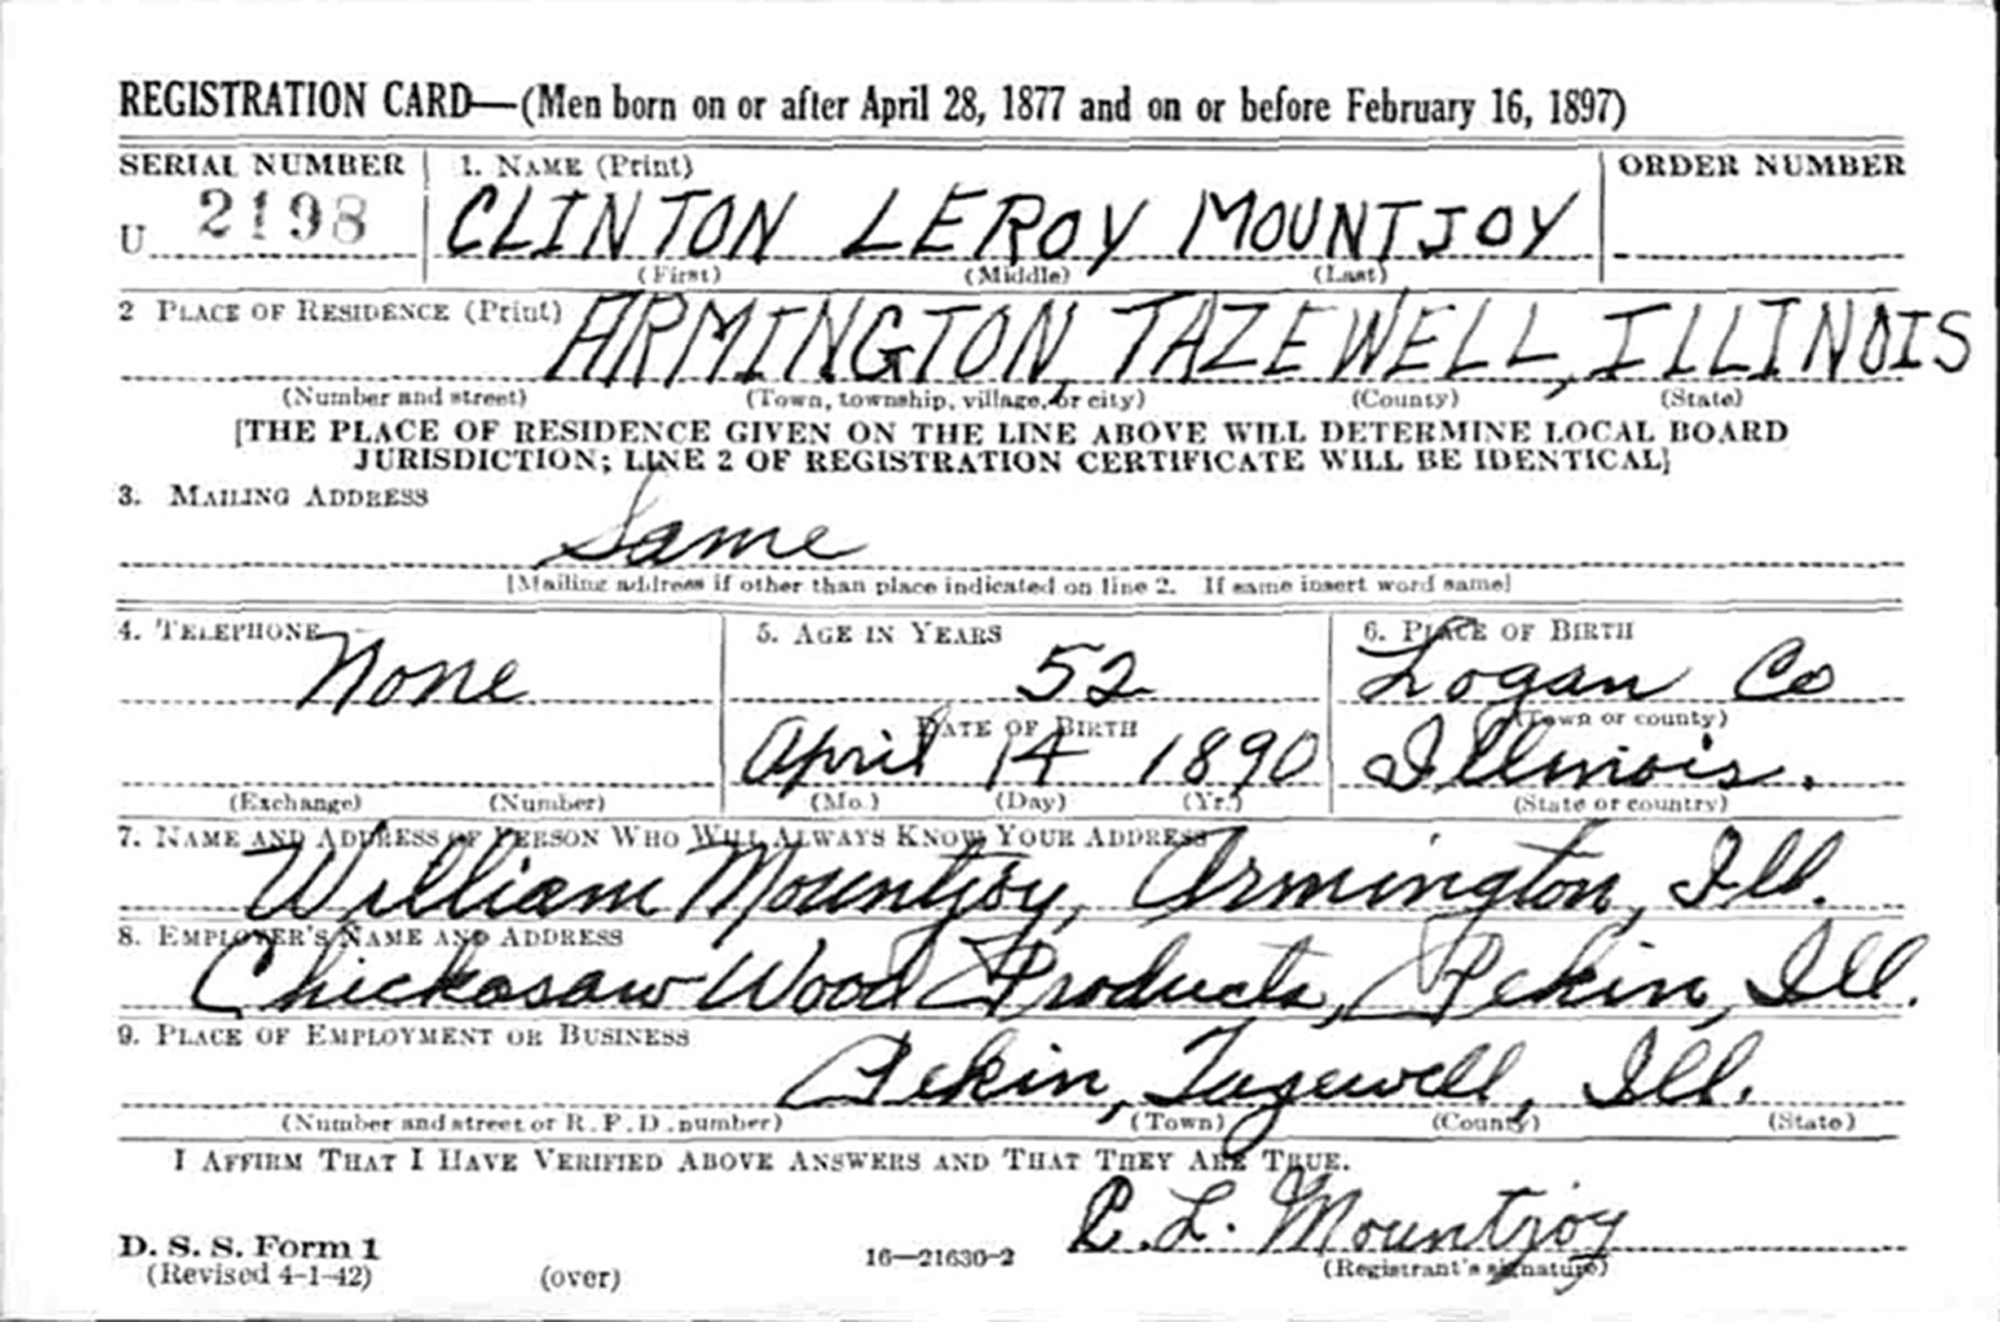 REGISTRATION CARD—(Men born on or after April 28, 1877 and on or before February 16, 1897)
SERIAL NUMBER 1. NAME (Print) ORDER NUMBER
U 2198 CLINTON LEROY MOUNTJOY
(First) (Middle) (Last)
2 PLACE OF RESIDENCE (Print)
ARMINGTON, TAZEWELL, ILLINOIS
(Number and street) (Town, township, village, or city) (County) (State)
[THE PLACE OF RESIDENCE GIVEN ON THE LINE ABOVE WILL DETERMINE LOCAL BOARD
JURISDICTION; LINE 2 OF REGISTRATION CERTIFICATE WILL BE IDENTICAL]
3. MAILING ADDRESS
Same
[Mailing address if other than place indicated on line 2. If same insert word same]
4. TELEPHONE 5. AGE IN YEARS 6. PLACE OF BIRTH
None 52 Logan Co
DATE OF BIRTH (Town or county)
April 14 1890 Illinois.
(Exchange) (Number) (Mo.) (Day) (Yr.) (State or country)
7. NAME AND ADDRESS OF PERSON WHO WILL ALWAYS KNOW YOUR ADDRESS
William Mountjoy, Armington, Ill.
8. EMPLOYER'S NAME AND ADDRESS
Chickasaw Wood Products, Pekin, Ill.
9. PLACE OF EMPLOYMENT OR BUSINESS
Pekin, Tazewell, Ill.
(Number and street or R. F. D. number) (Town) (County) (State)
I AFFIRM THAT I HAVE VERIFIED ABOVE ANSWERS AND THAT THEY ARE TRUE.
C. L. Mountjoy
D. S. S. Form 1
(Revised 4-1-42) (over) 16—21630-2 (Registrant's signature)